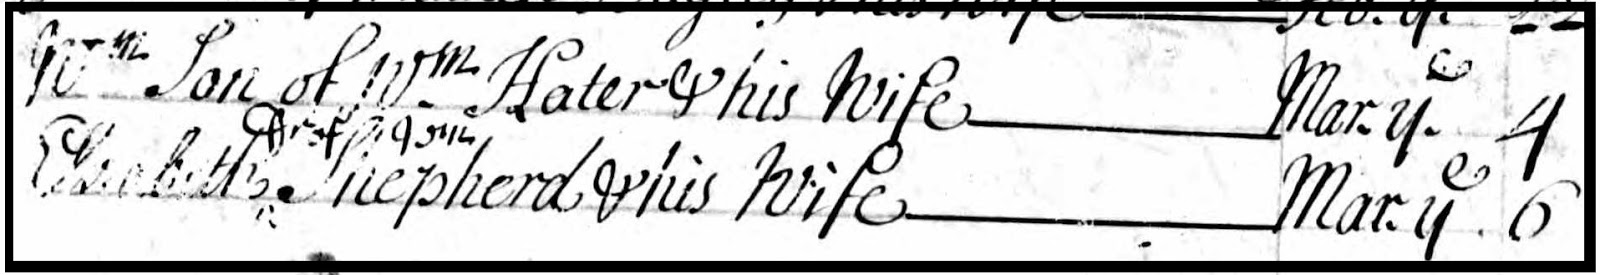 his Wife Feb. ye. 22
Wm Son of Wm Hater & his Wife Mar. ye. 4
Elizabeth Dr of Shepherd & his Wife Mar. ye 6